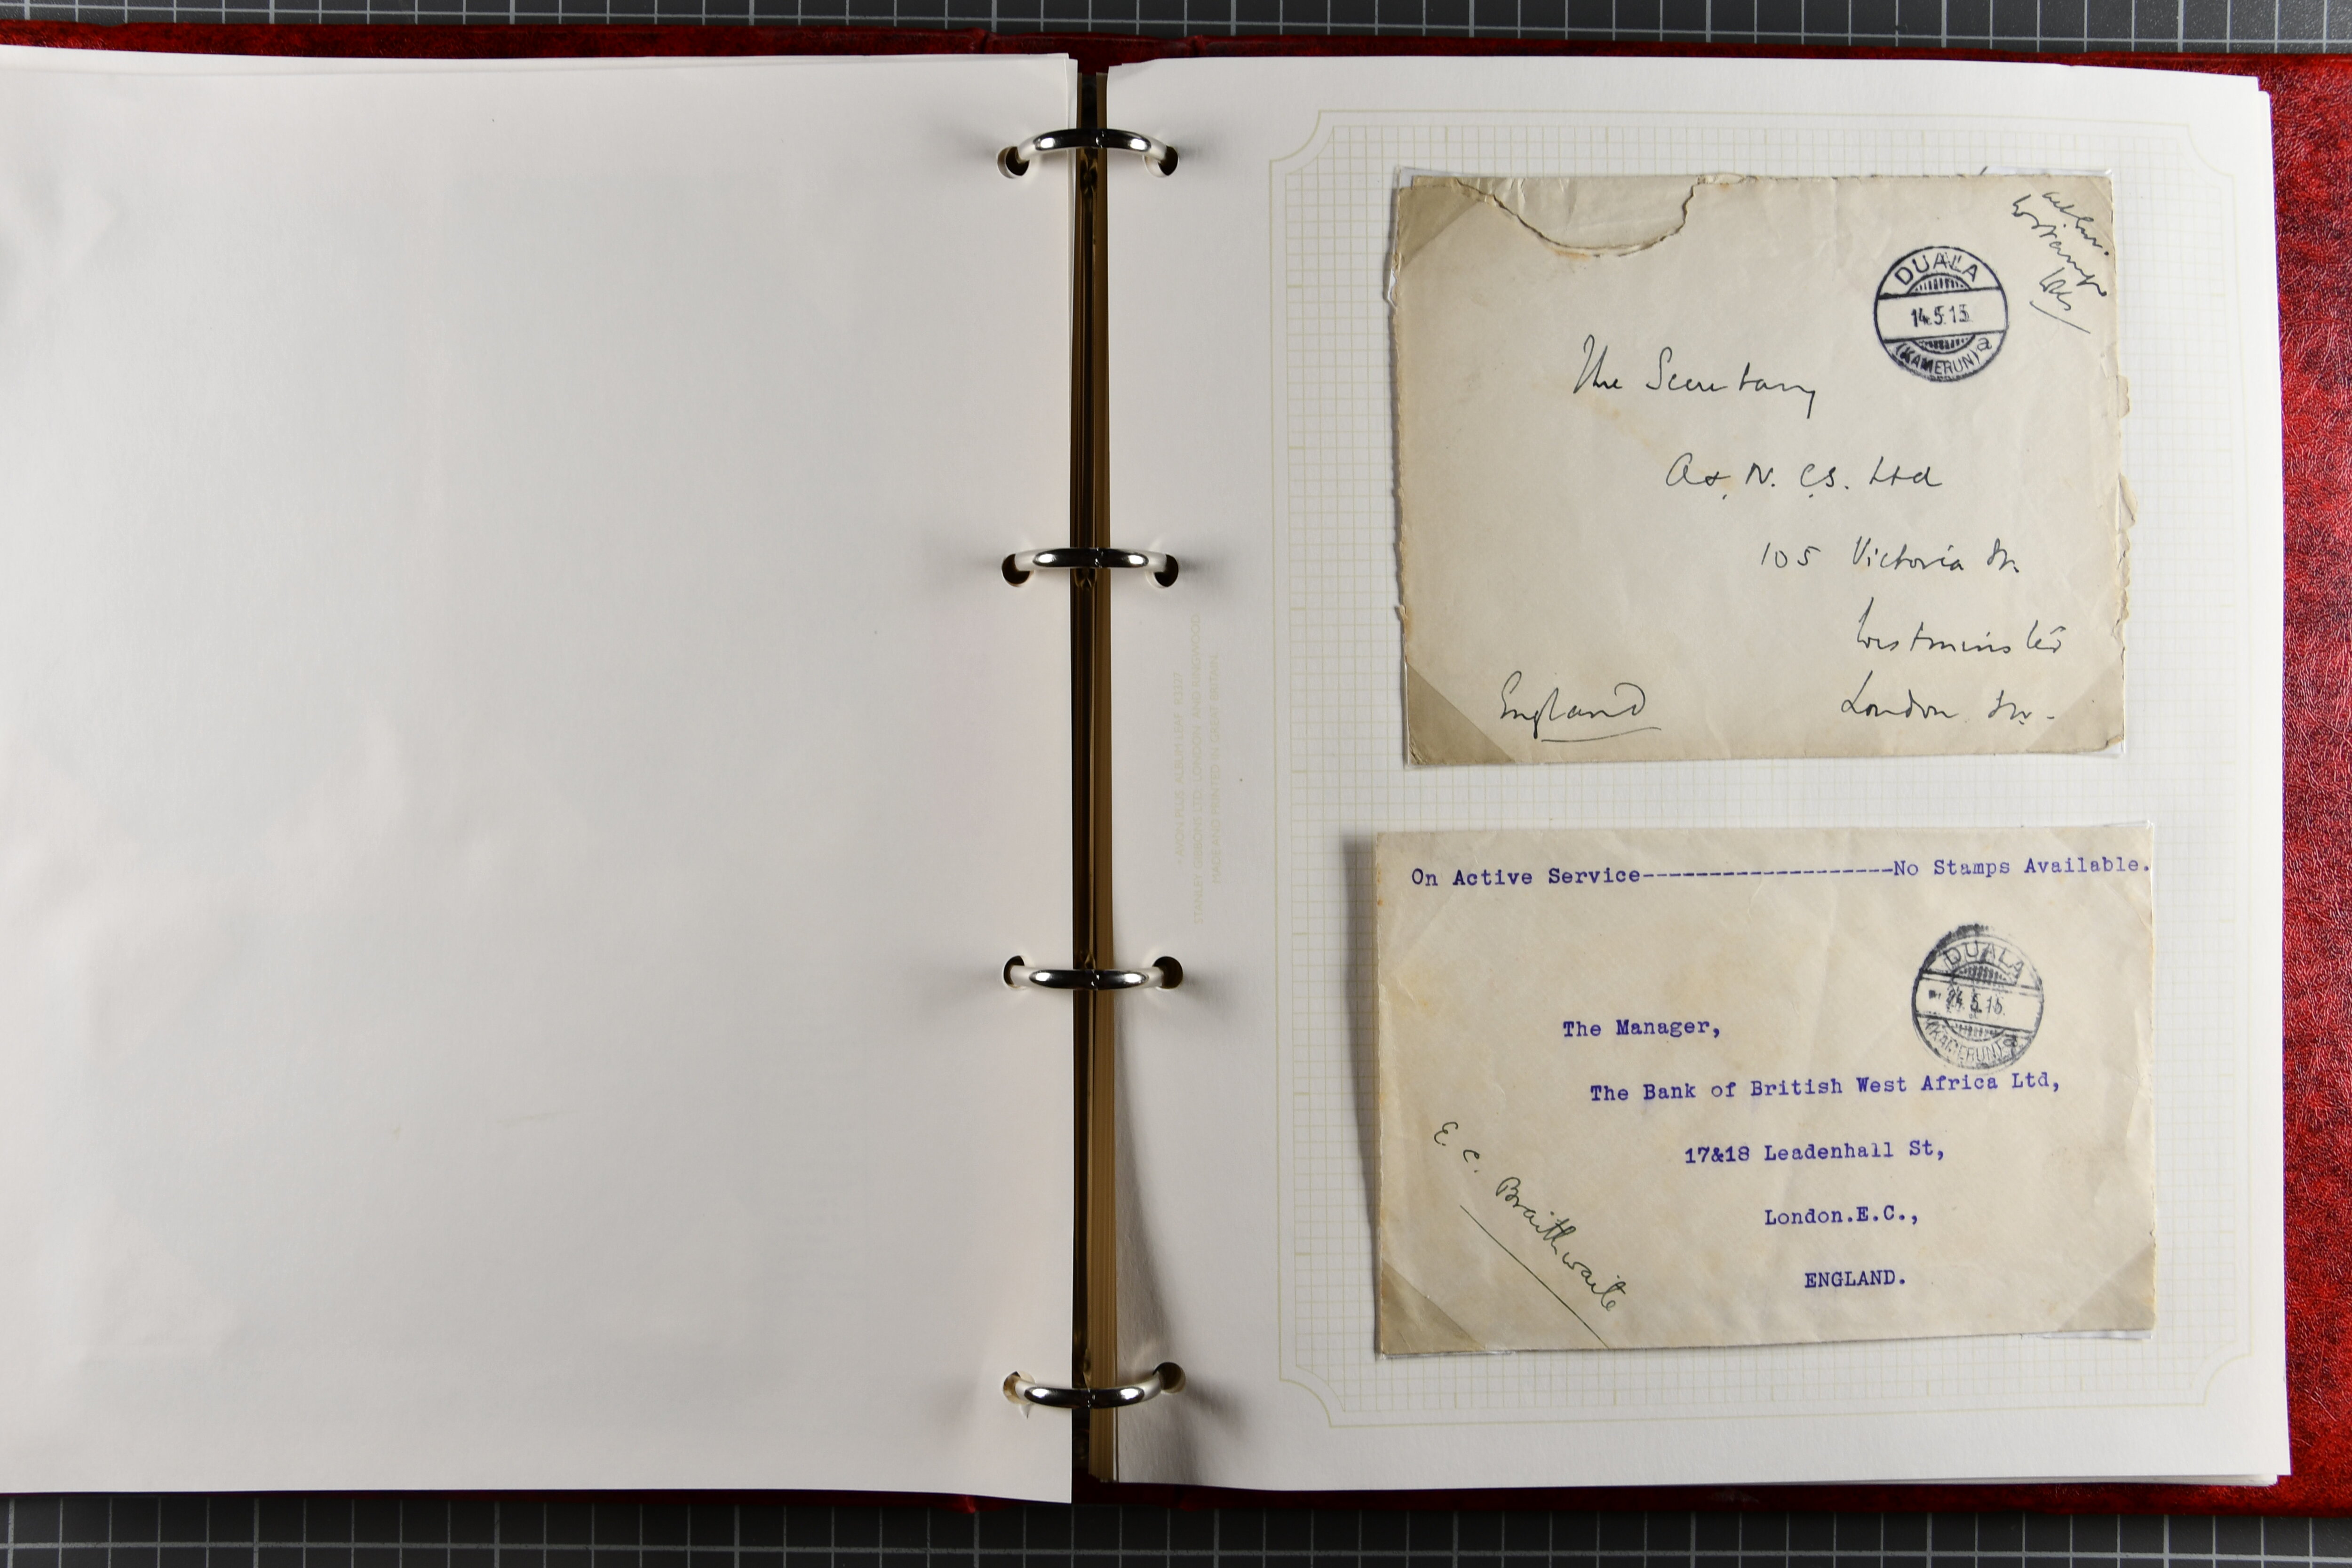 DUALA
14.5.15
(KAMERUN) a
The Secretary
A & N. C.S. Ltd
105 Victoria St.
Westminster
London SW.
England
On Active Service-------------------No Stamps Available.
DUALA
24.5.15
(KAMERUN) a
The Manager,
The Bank of British West Africa Ltd,
17&18 Leadenhall St,
London.E.C.,
ENGLAND.
E. C. Braithwaite
STANLEY GIBBONS LTD. LONDON AND RINGWOOD
MADE AND PRINTED IN GREAT BRITAIN